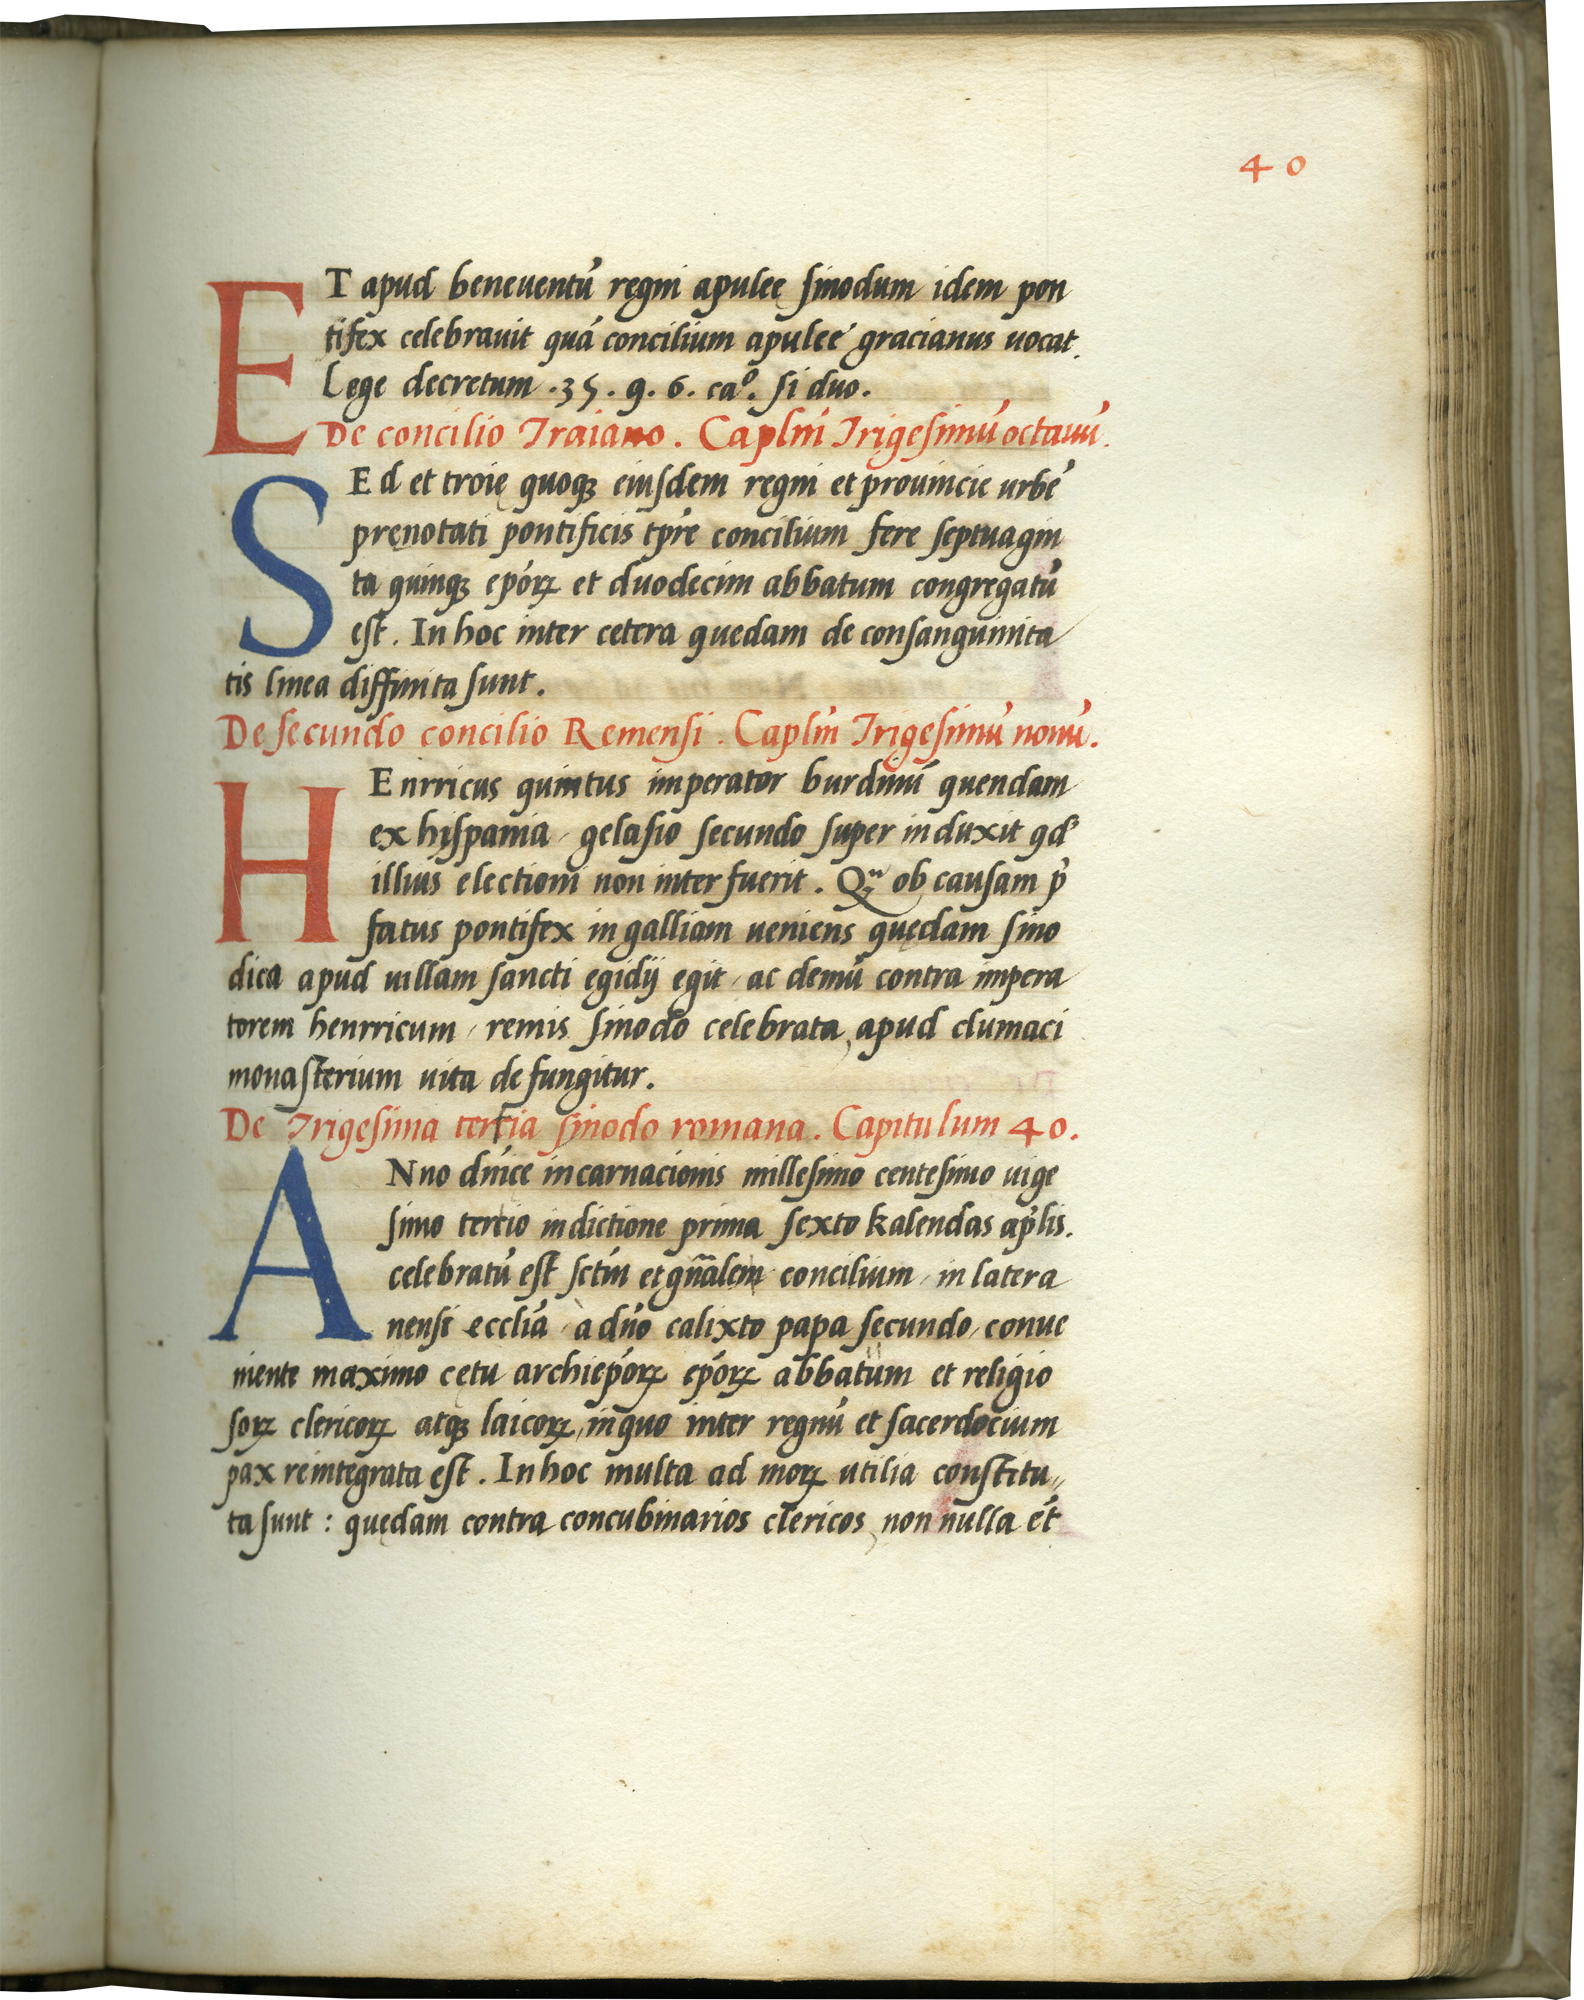 40
ET apud beneuentū regni apulee sinodum idem pon
tifex celebrauit quā concilium apulee gracianus uocat.
Lege decretum .35. q. 6. caº. si duo.
De concilio Traiano. Caplm̄ Trigesimū octauū.
SEd et troię quoqꝫ eiusdem regni et prouincie urbē
prenotati pontificis tp̄re concilium fere septuagin
ta quinqꝫ ep̄orꝝ et duodecim abbatum congregatū
est. In hoc inter cetera quedam de consanguinita
tis linea diffinita sunt.
De secundo concilio Remensi. Caplm̄ Trigesimū nonū.
HEnrricus quintus imperator burdinū quendam
ex hispania / gelasio secundo super induxit qd'
illius electioni non inter fuerit. Qm̄ ob causam p̄
fatus pontifex in galliam ueniens quędam sino
dica apud uillam sancti egidij egit / ac demū contra impera
torem henrricum / remis sinodo celebrata, apud clumaci
monasterium uita defungitur.
De Trigesima tertia sinodo romana. Capitulum 40.
ANno dn̄ice incarnacionis millesimo centesimo uige
simo tertio indictione prima sexto kalendas ap̄lis.
celebratū est sctm̄ et gn̄alem concilium / in latera
nensi eccliā / a dn̄o calixto papa secundo / conue
niente maximo cętu archiep̄orꝝ ep̄orꝝ abbatum et religio
sorꝝ clericorꝝ atqꝫ laicorꝝ / in quo inter regnū et sacerdocium
pax reintegrata est. In hoc multa ad morꝝ utilia constitu〃
ta sunt: quędam contra concubinarios clericos, non nulla et̄